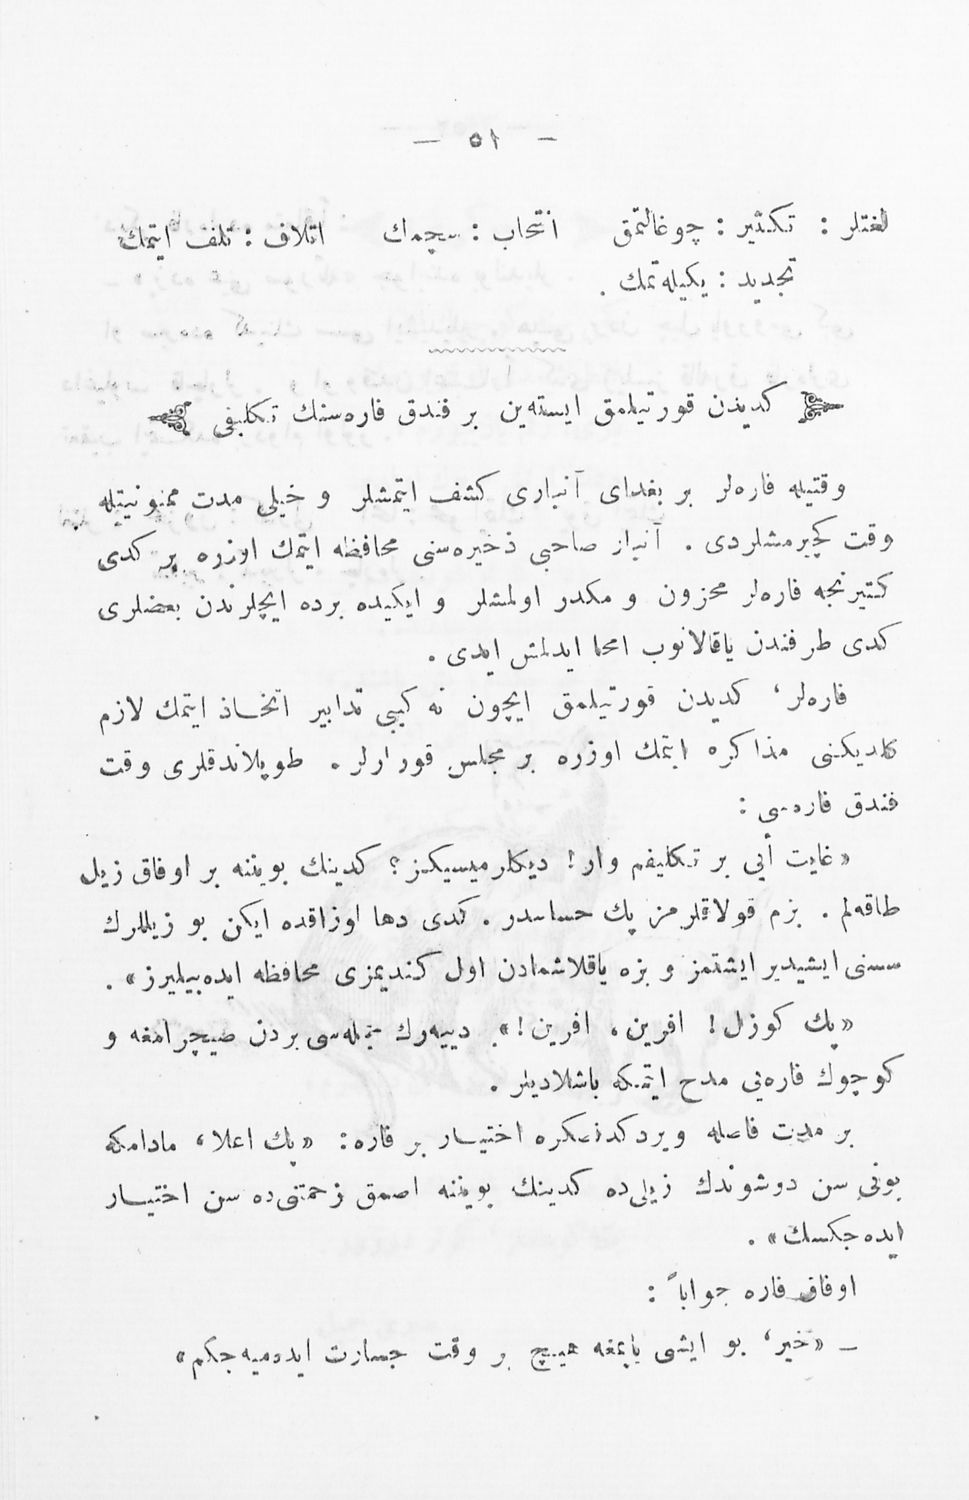 — ١٥ —
لغتلر : تكثير : چوغالتمق انتخاب : سچمك اتلاف : تلف ايتمك
تجديد : يكيله تمك .
كديدن قورتيلمق ايسته‌ين بر فندق فاره‌سنك تكليفى
وقتيله فاره‌لر بر بغداى آنبارى كشف ايتمشلر و خيلى مدت ممنونيتله
وقت كچيرمشلردى . آنبار صاحبى ذخيره‌سنى محافظه ايتمك اوزره بر كدى
كتيرنجه فاره‌لر محزون و مكدر اولمشلر و ايكيده برده ايچلرندن بعضلرى
كدى طرفندن ياقالانوب امحا ايدلمش ايدى .
فاره‌لر، كديدن قورتيلمق ايچون نه كبى تدابير اتخاذ ايتمك لازم
كلديكنى مذاكره ايتمك اوزره بر مجلس قورارلر . طوپلاندقلرى وقت
فندق فاره‌سى :
« غايت أيى بر تكليفم وار ! ديكلرميسيكز ؟ كدينك بويننه بر اوفاق زيل
طاقه‌لم . بزم قولاقلرمز پك حساسدر . كدى دها اوزاقده ايكن بو زيللرك
سسنى ايشيدير ايشتمز و بزه ياقلاشمادن اول كنديمزى محافظه ايده‌بيليرز » .
« پك كوزل ! افرين ، افرين ! » دييه‌رك جمله‌سى بردن صيچرامغه و
كوچوك فاره‌يى مدح ايتمكه باشلاديلر .
بر مدت فاصله ويردكدنصكره اختيار بر فاره : « پك اعلا ، مادامكه
بونى سن دوشوندك زيلى‌ده كدينك بويننه اصمق زحمتنى‌ده سن اختيار
ايده‌جكسك » .
اوفاق فاره جواباً :
— « خير ، بو ايشى ياپمغه هيچ بر وقت جسارت ايده‌ميه‌جكم »